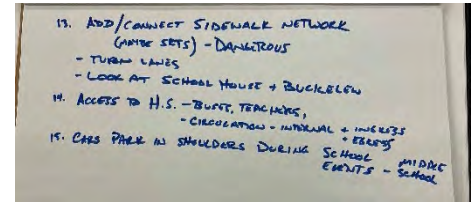 13. ADD/CONNECT SIDEWALK NETWORK
(MAYBE SRTS) - DANGEROUS
- TURN LANES
- LOOK AT SCHOOL HOUSE + BUCKELEW
14. ACCESS TO H.S. - BUSES, TEACHERS,
- CIRCULATION - INTERNAL + INGRESS
+ EGRESS
15. CARS PARK IN SHOULDERS DURING SCHOOL
EVENTS - MIDDLE
SCHOOL